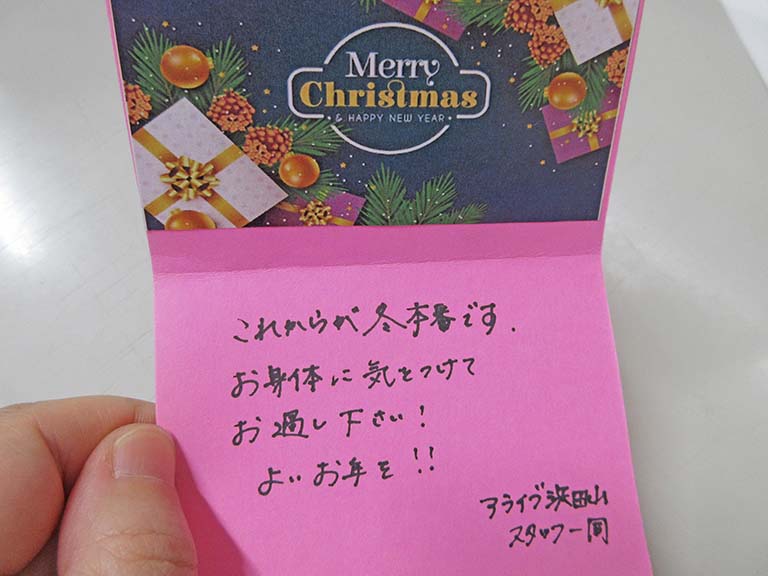 Merry
Christmas
& HAPPY NEW YEAR
これからが冬本番です.
お身体に気をつけて
お過し下さい!
よいお年を!!
アライブ浜田山
スタッフ一同